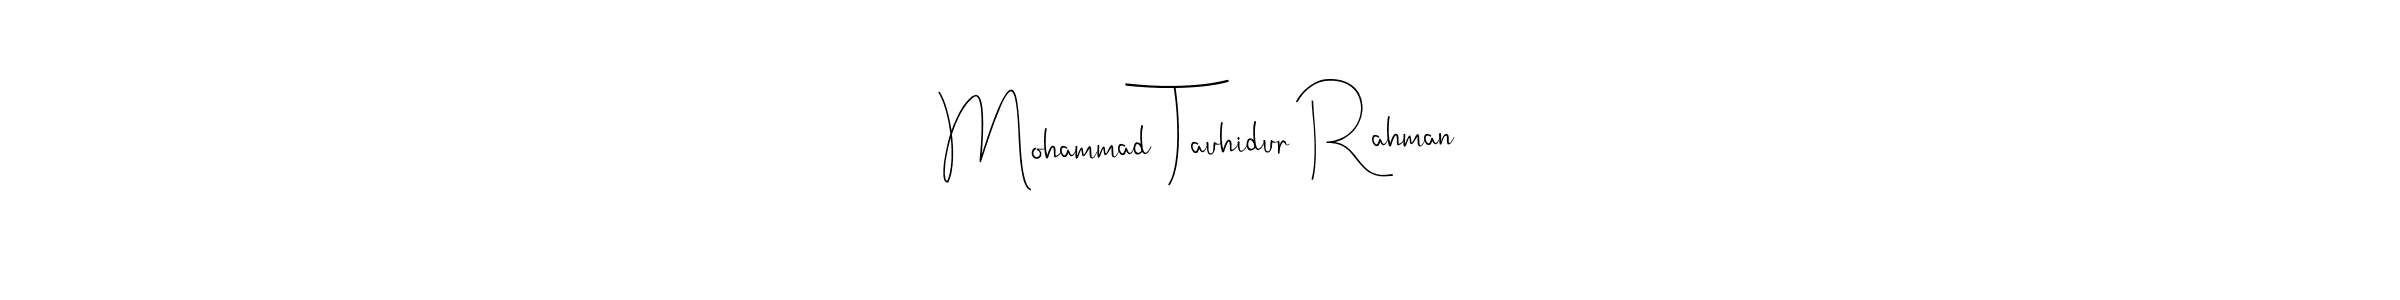 Mohammad Tauhidur Rahman